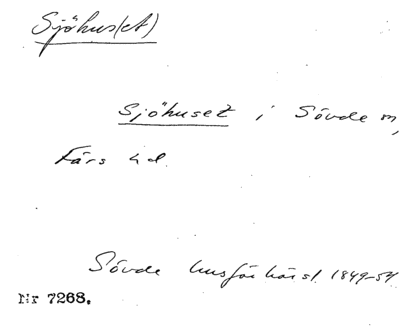 Sjöhus(et)
Sjöhuset i Sövde sn,
Färs hd.
Sövde husförhörsl. 1849-54
Nr 7268.